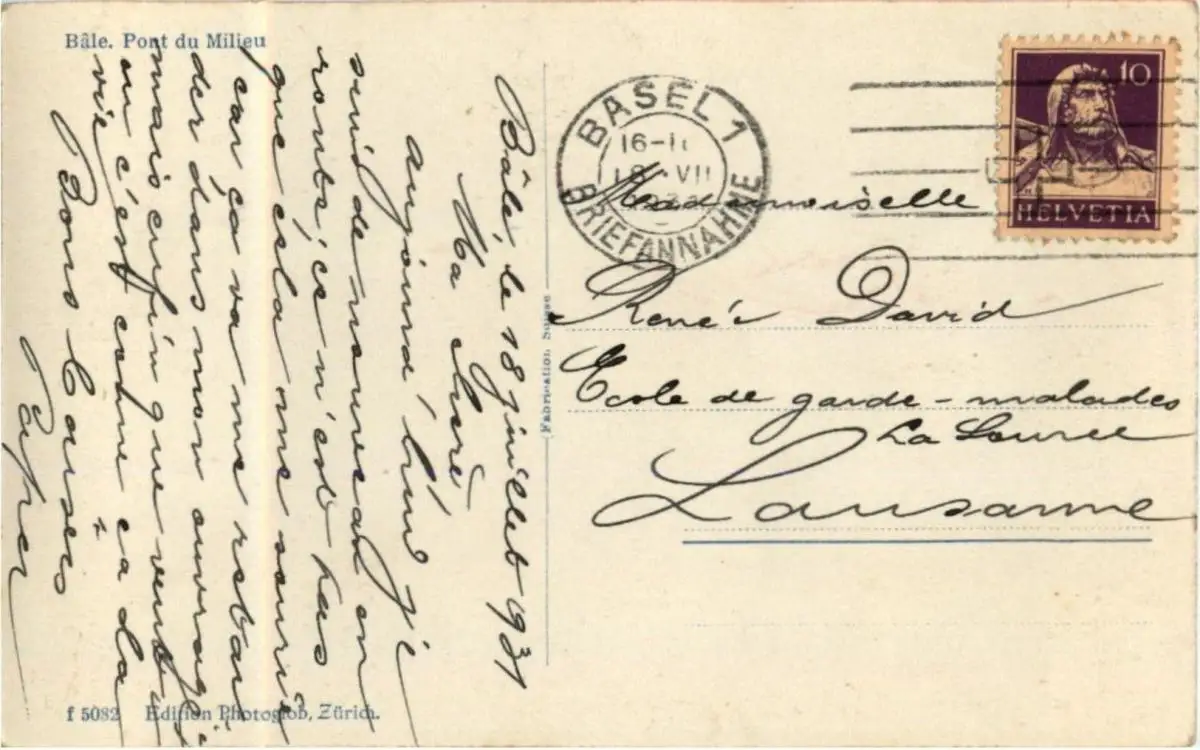 Bâle. Pont du Milieu
Bâle, le 18 juillet 1931
Ma chérie
aujourd'hui je
suis de nouveau en
route, ce n'est pas
que cela me sourie
car ça va me retar
der dans mon ouvrage
mais enfin que veux tu
c'est comme ça la
vie
Bons baisers
f 5082 Edition Photoglob, Zürich.
Fabrication Suisse
BASEL 1
16-
18. VII
BRIEFANNAHME
10
HELVETIA
Mademoiselle
Renée David
Ecole de garde-malades
La Source
Lausanne